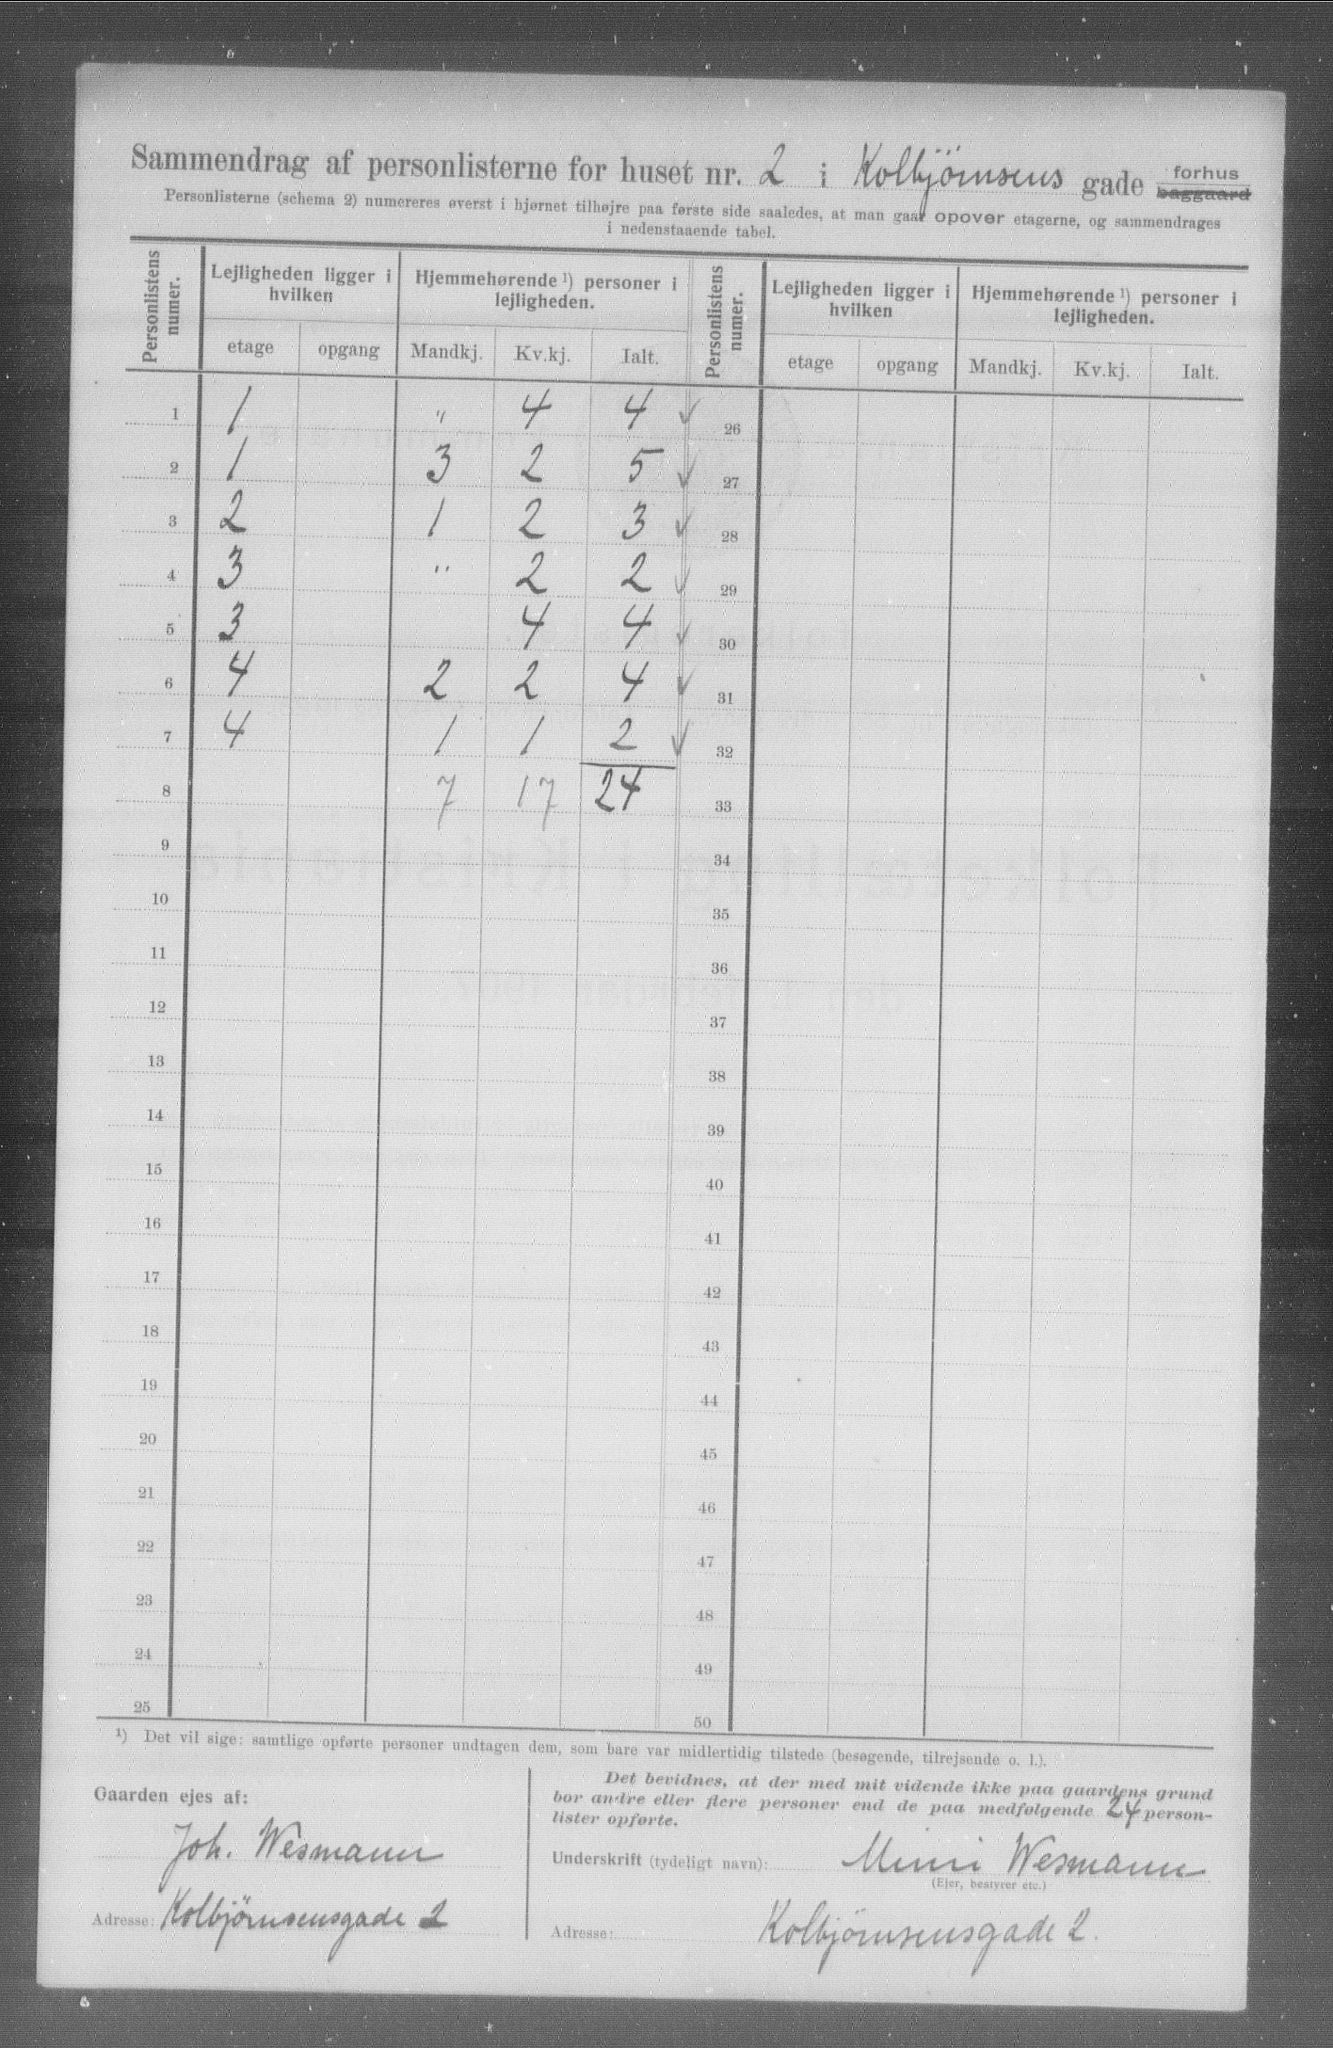 Sammendrag af personlisterne for huset nr. 2 i Kolbjørnsens gade forhus baggaard
Personlisterne (schema 2) numereres øverst i hjørnet tilhøjre paa første side saaledes, at man gaar opover etagerne, og sammendrages
i nedenstaaende tabel.
Personlistens numer.
Lejligheden ligger i hvilken
Hjemmehørende ¹) personer i lejligheden.
Personlistens numer.
Lejligheden ligger i hvilken
Hjemmehørende ¹) personer i lejligheden.
etage opgang Mandkj. Kv.kj. Ialt. etage opgang Mandkj. Kv.kj. Ialt.
1 1 " 4 4 ✓ 26
2 1 3 2 5 ✓ 27
3 2 1 2 3 ✓ 28
4 3 " 2 2 ✓ 29
5 3 4 4 ✓ 30
6 4 2 2 4 ✓ 31
7 4 1 1 2 ✓ 32
8 7 17 24 33
9 34
10 35
11 36
12 37
13 38
14 39
15 40
16 41
17 42
18 43
19 44
20 45
21 46
22 47
23 48
24 49
25 50
¹) Det vil sige: samtlige opførte personer undtagen dem, som bare var midlertidig tilstede (besøgende, tilrejsende o. l.).
Gaarden ejes af:
Joh. Wesmann
Adresse: Kolbjørnsensgade 2
Det bevidnes, at der med mit vidende ikke paa gaardens grund
bor andre eller flere personer end de paa medfølgende 24 person-
lister opførte.
Underskrift (tydeligt navn): Mimi Wesmann
(Ejer, bestyrer etc.)
Adresse: Kolbjørnsensgade 2.